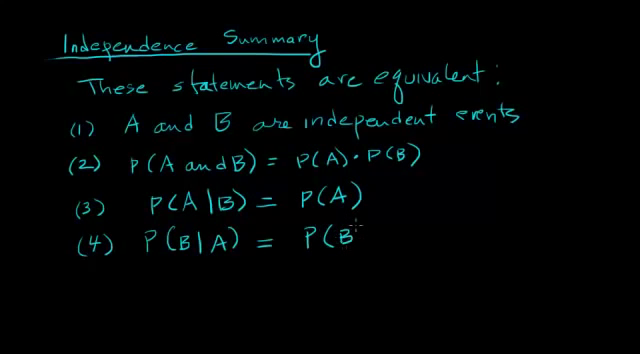 Independence Summary
These statements are equivalent:
(1) A and B are independent events
(2) P(A and B) = P(A) • P(B)
(3) P(A|B) = P(A)
(4) P(B|A) = P(B